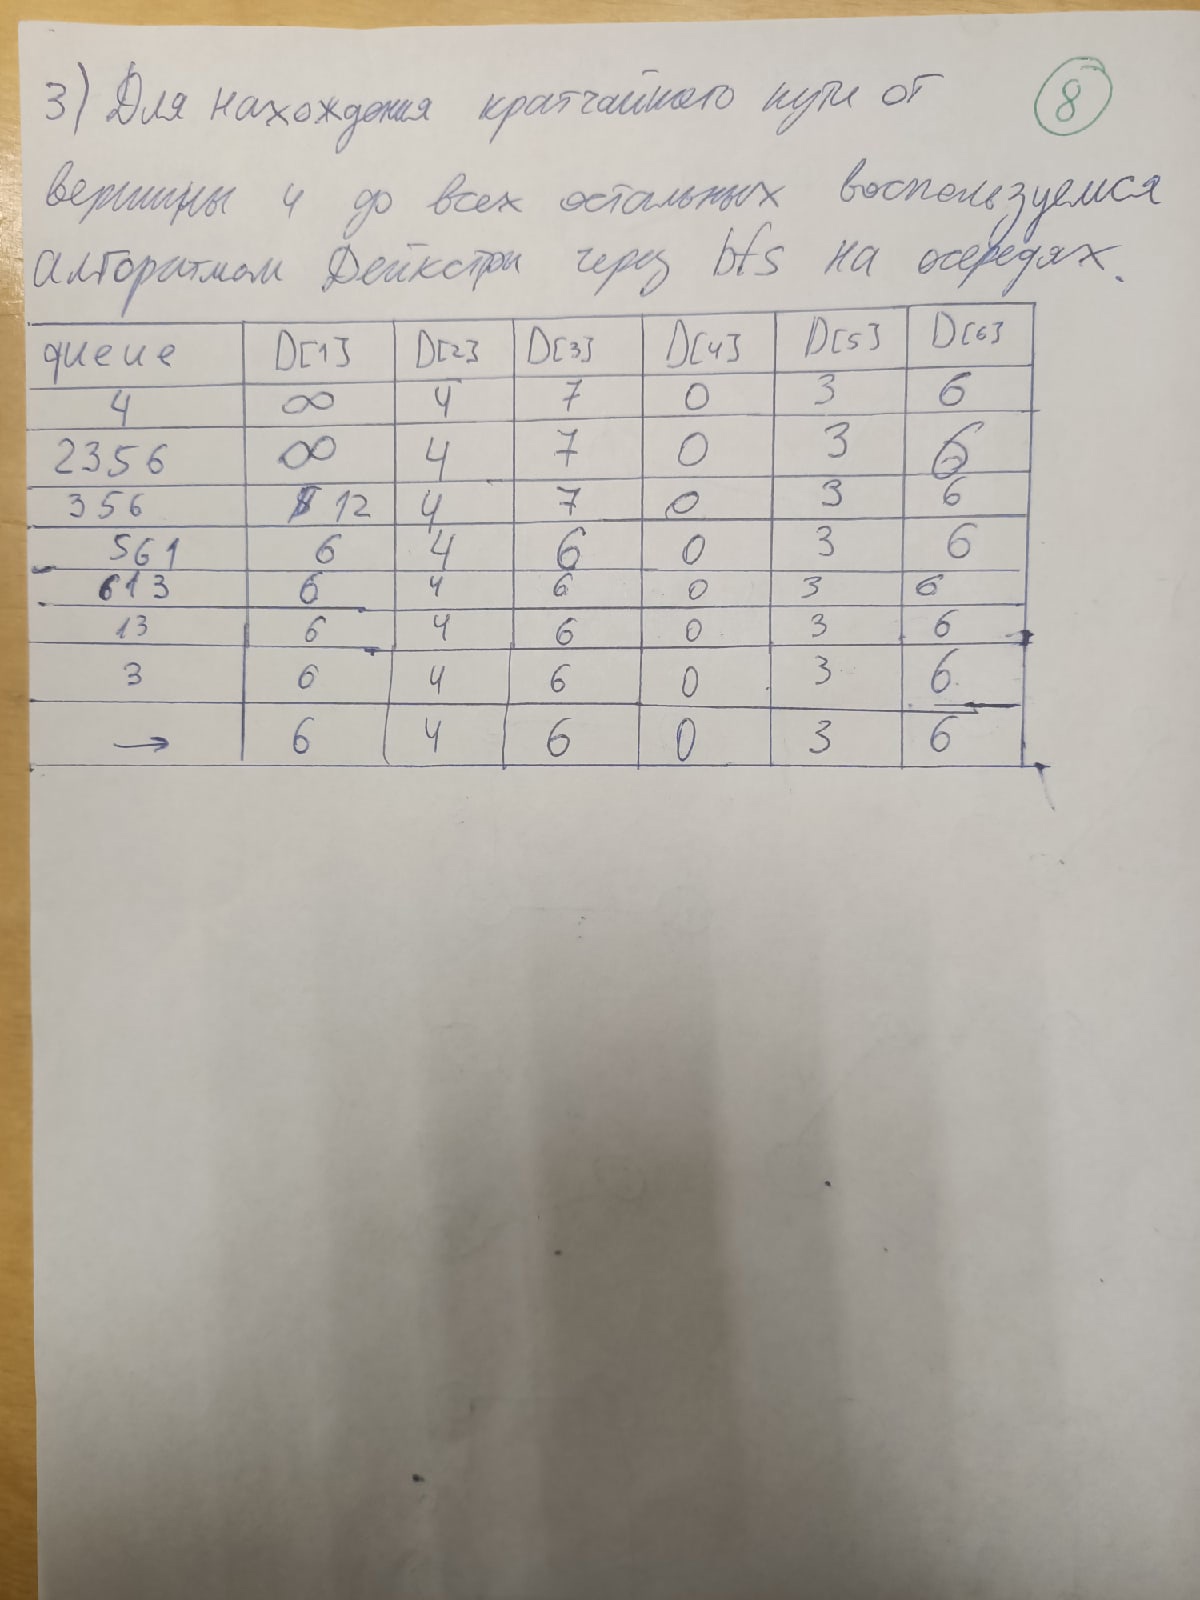 3) Для нахождения кратчайшего пути от
8
вершины 4 до всех остальных воспользуемся
алгоритмом Дейкстры через bfs на очередях.
queue D[1] D[2] D[3] D[4] D[5] D[6]
4 ∞ 4 7 0 3 6
2356 ∞ 4 7 0 3 6
356 12 4 7 0 3 6
561 6 4 6 0 3 6
613 6 4 6 0 3 6
13 6 4 6 0 3 6
3 6 4 6 0 3 6
→ 6 4 6 0 3 6